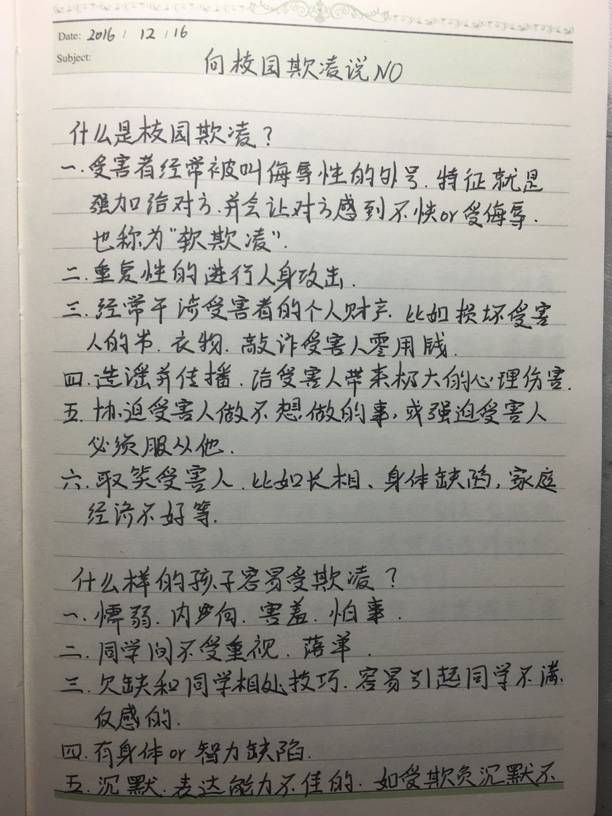 Date: 2016 / 12 / 16
Subject:
向校园欺凌说NO
什么是校园欺凌?
一.受害者经常被叫侮辱性的外号.特征就是
强加给对方.并会让对方感到不快or受侮辱.
也称为"软欺凌".
二.重复性的进行人身攻击.
三.经常干涉受害者的个人财产.比如损坏受害
人的书.衣物.敲诈受害人零用钱.
四.造谣并传播.给受害人带来极大的心理伤害.
五.协迫受害人做不想做的事,或强迫受害人
必须服从他.
六.取笑受害人.比如长相、身体缺陷,家庭
经济不好等.
什么样的孩子容易受欺凌?
一.懦弱.内向.害羞.怕事.
二.同学间不受重视.落单.
三.欠缺和同学相处技巧.容易引起同学不满.
反感的.
四.有身体or智力缺陷.
五.沉默.表达能力不佳的.如受欺负沉默不